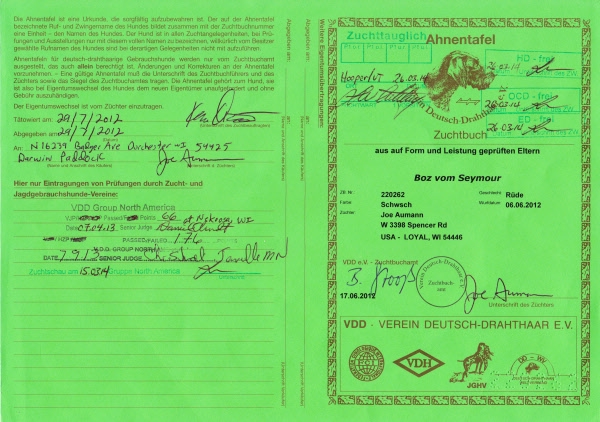 Die Ahnentafel ist eine Urkunde, die sorgfältig aufzubewahren ist. Der auf der Ahnentafel
bezeichnete Ruf- und Zwingername des Hundes bildet zusammen mit der Zuchtbuchnummer
eine Einheit - den Namen des Hundes. Der Hund ist in allen Zuchtangelegenheiten, bei Prü-
fungen und Ausstellungen nur mit diesem vollen Namen zu bezeichnen, willkürlich vom Besitzer
gewählte Rufnamen des Hundes sind bei derartigen Gelegenheiten nicht mit aufzuführen.
Ahnentafeln für deutsch-drahthaarige Gebrauchshunde werden nur vom Zuchtbuchamt
ausgestellt, das auch allein berechtigt ist, Änderungen und Korrekturen an der Ahnentafel
vorzunehmen. - Eine gültige Ahnentafel muß die Unterschrift des Zuchtbuchführers und des
Züchters sowie das Siegel des Zuchtbuchamtes tragen. Die Ahnentafel gehört zum Hund, sie
ist also bei Eigentumswechsel des Hundes dem neuen Eigentümer unaufgefordert und ohne
Gebühr auszuhändigen.
Der Eigentumswechsel ist vom Züchter einzutragen.
Tätowiert am: 29/7/2012
Abgegeben am: 29/7/2012
An: N16239 Badger Ave Dorchester WI 54425
Darwin Paddock
Joe Aumann
Hier nur Eintragungen von Prüfungen durch Zucht- und
Jagdgebrauchshunde-Vereine:
VDD Group North America
Points 66 at Nekoosa, WI
Date 07.04.13 Senior Judge
PASSED/FAILED 176
V.D.D. GROUP NORTH
DATE 7.9.13 SENIOR JUDGE
MN
Zuchtschau am 15.03.14 Gruppe North America
Abgegeben am:
An:
Weitere Eigentumsübertragungen:
Abgegeben am:
An:
Zuchttauglich
Pfut Pfut Pfut Pfut
Ahnentafel
Hooper, UT 26.03.14
HD - frei
26.03.14
OCD - frei
26.03.14
ED - frei
26.03.14
Verein Deutsch-Drahthaar
Zuchtbuch
aus auf Form und Leistung geprüften Eltern
Boz vom Seymour
ZB Nr.: 220262
Geschlecht: Rüde
Farbe: Schwsch
Wurfdatum: 06.06.2012
Züchter: Joe Aumann
W 3398 Spencer Rd
USA - LOYAL, WI 54446
VDD e.V. - Zuchtbuchamt
Verein Deutsch-Drahthaar
Zuchtbuch-
amt
17.06.2012
Joe Aumann
Unterschrift des Züchters
VDD - VEREIN DEUTSCH-DRAHTHAAR E.V.
FCI
VDH
JGHV